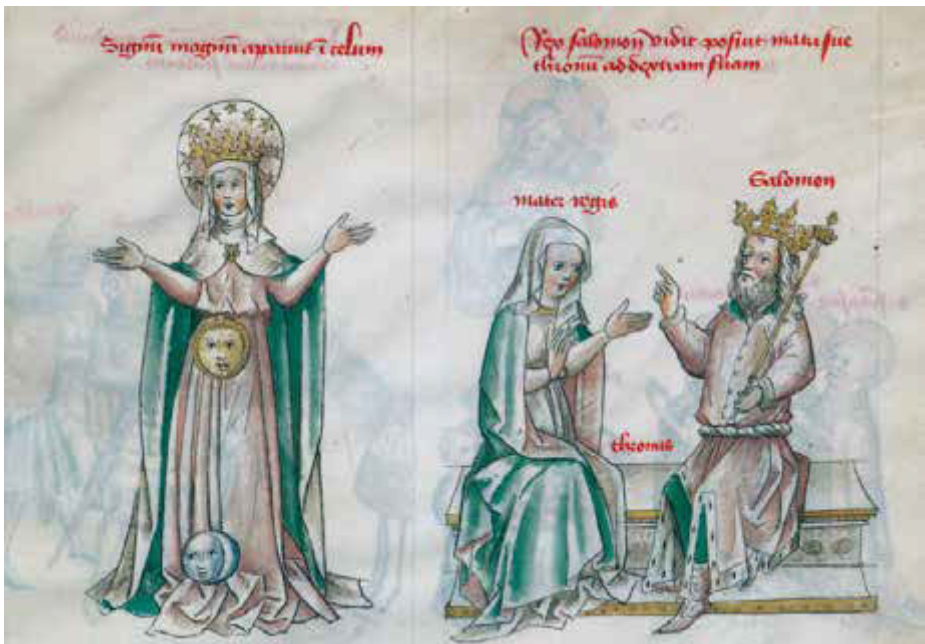 Signū magnū aparuit ī celum
Rex salomon vidit posuit matri sue
thronū ad dextram suam
mater regis
Salomon
thronus